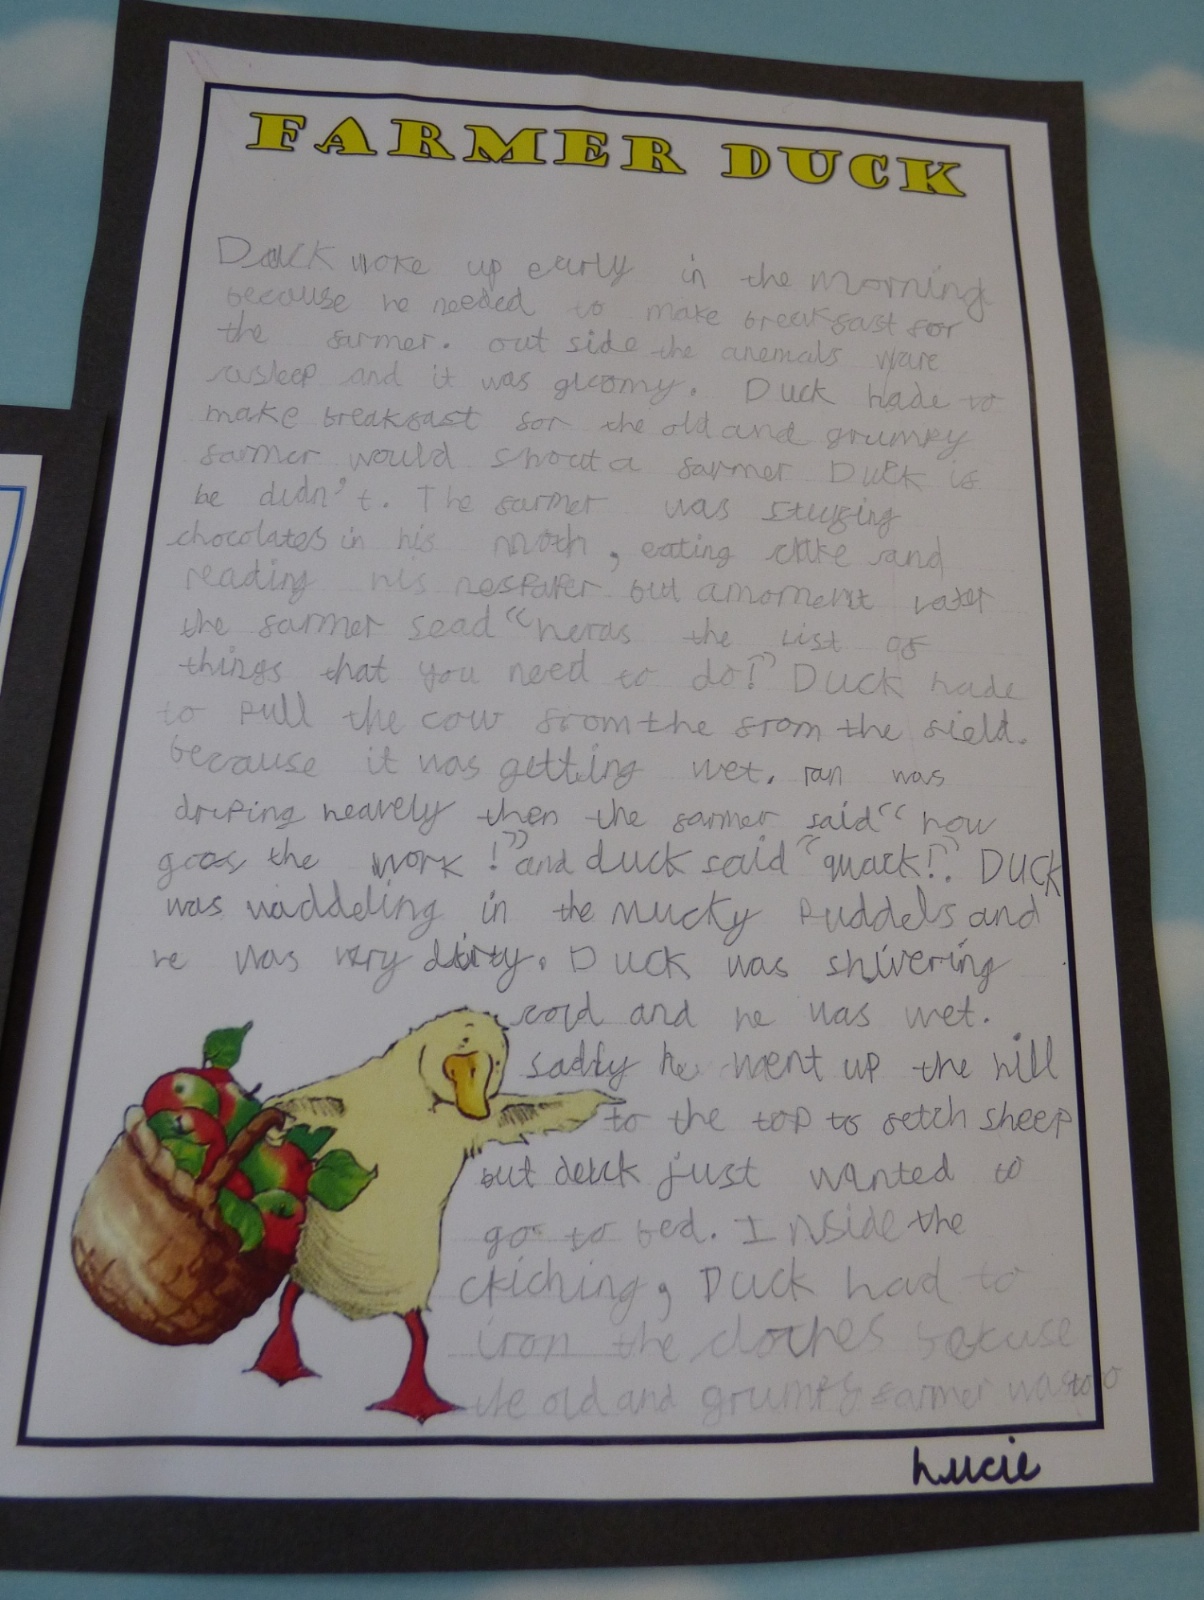 FARMER DUCK
Duck woke up early in the morning
because he needed to make breakfast for
the farmer. out side the anemals ware
asleep and it was gloomy. Duck hade to
make breakfast for the old and grumpy
farmer would shout a farmer Duck if
he didn't. The farmer was stuffing
chocolates in his moth, eating cake and
reading his nespaper but a moment later
the farmer sead "heras the list of
things that you need to do!" Duck hade
to pull the cow from the from the field.
because it was getting wet. ran was
driping heavely then the farmer said "how
goas the work!" and duck said "quack!". Duck
was waddeling in the mucky puddels and
he was very dirty. Duck was shivering
cold and he was wet.
sadly he went up the hill
to the top to fetch sheep
but duck just wanted to
go to bed. Inside the
ckiching, Duck had to
iron the cloches becuse
the old and grumpy farmer was to
Lucie